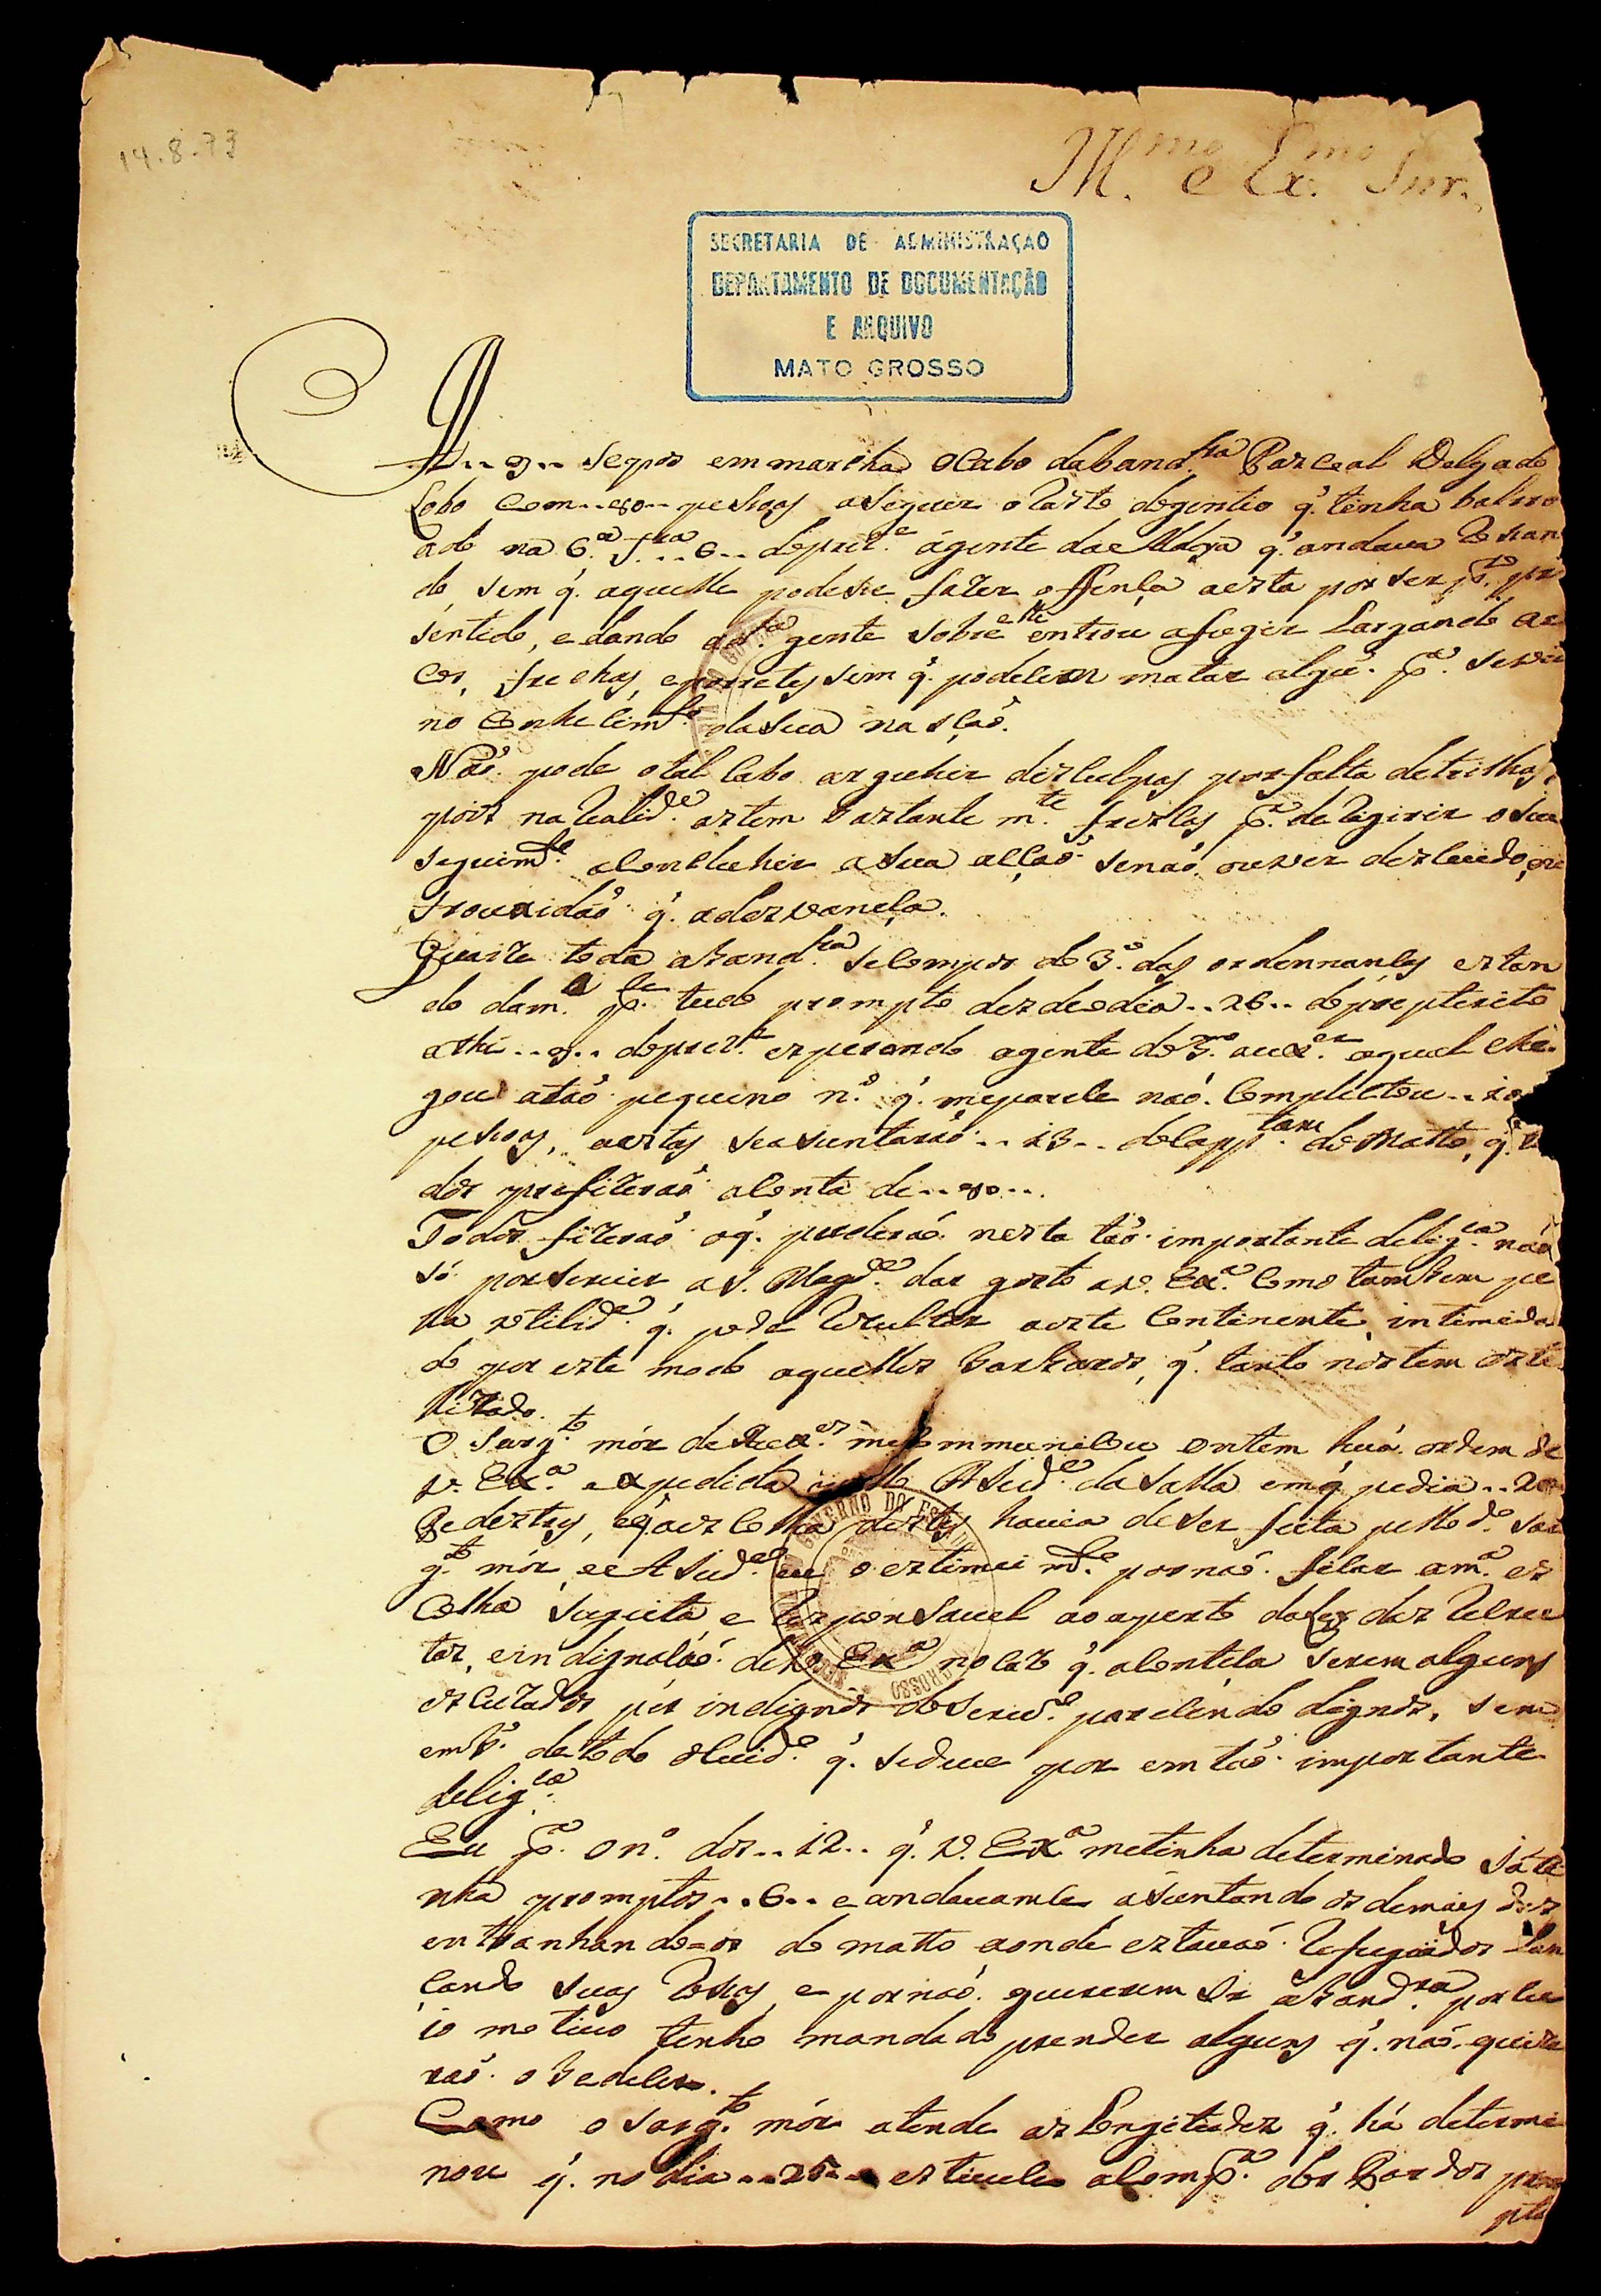 14.8.73
Ill.mo e Ex.mo Snr.
SECRETARIA DE ADMINISTRAÇÃO
DEPARTAMENTO DE DOCUMENTAÇÃO
E ARQUIVO
MATO GROSSO
A..9.. se pos em marcha o Cabo da band.ra Pascoal Delgado
Lobo com..90.. pessoas aseguir o rasto do gentio q̃. tinha
na 6.a f.ra..6.. do prez.e á gente da Aldeya q̃. andava
do, sem q̃. aquelle podesse fazer offença a esta por ser p.ro pre
sentido, e dando a d.ta gente sobre elle entrou afugir Largando ar
cos, frechas, eporretes sem q̃. podesem matar algũ. p.a se vir
no Conhecim.to da sua nasção.
Não pode otal Cabo arguhir dezculpas por falta de trilhas,
pois na realid.e os tem bastante m.te frescos p.a deligirir o seu
seguim.to a concluhir a sua acção se não ouver dezcuido, ou
frouxidão q̃. a desvaneça.
Quaze toda aband.ra se compos do 3.o das ordennanças estan
do da m.a p.te tudo prompto dezde o dia..26.. do preterito
athe..9.. do prez.e esperando agente do 3.o aux.er aqual che-
gou atão pequeno n.o q̃. me parece não. Completou..20
pesoas, aestas se ajuntarão..13.. do Capp.tam do Matto, q̃. to
dos prefizerão aConta de..90...
Todos fizerão oq̃. puderão nesta tão importante delig.ca não
só por servir a S. Mag.de dar gosto a V. Ex.a Como tambem pe
lla utilid.e q̃. pode rezultar aeste Continente, intimida
do por este modo aquelles barbaros, q̃. tanto nos tem osti
lizado.
O Sarg.to mór de Aux.es me Communicou ontem hua ordem de
V. Ex.a expedida pello Ajud.e da Salla em q̃ pedia..20
Pedestres, e q̃ aescolha destes havia de ser feita pello d.o Sar
g.to mór, e Ajud.e eu o estimei m.to por não ficar a m.a es
Colha sugeita e responsavel ao aperto da Ley das recru
tas, e indignação de V. Ex.a no cazo q̃. aconteça serem alguns
escuzados por indignos do serv.o parecendo dignos, sem
emb.o de todo o cuid.o q̃. se deve por em tão importante
delig.ca
Eu p.a o n.o dos..12.. q̃. V. Ex.a me tinha determinado já ti
nha promptos..6.. e andavam se ajuntando os demais dez
entranhando-os do matto aonde estavão refugiados Lan
çando suas rossas, e por não quererem ir aband.ra por cu
jo motivo tenho mandado prender alguns q̃. não quize
rão obedecer.
Como o Sarg.to mór atende as Longitudez q̃. há determi
nou q̃. no dia..25.. estivece a Comp.a dos Pardos prom
pta